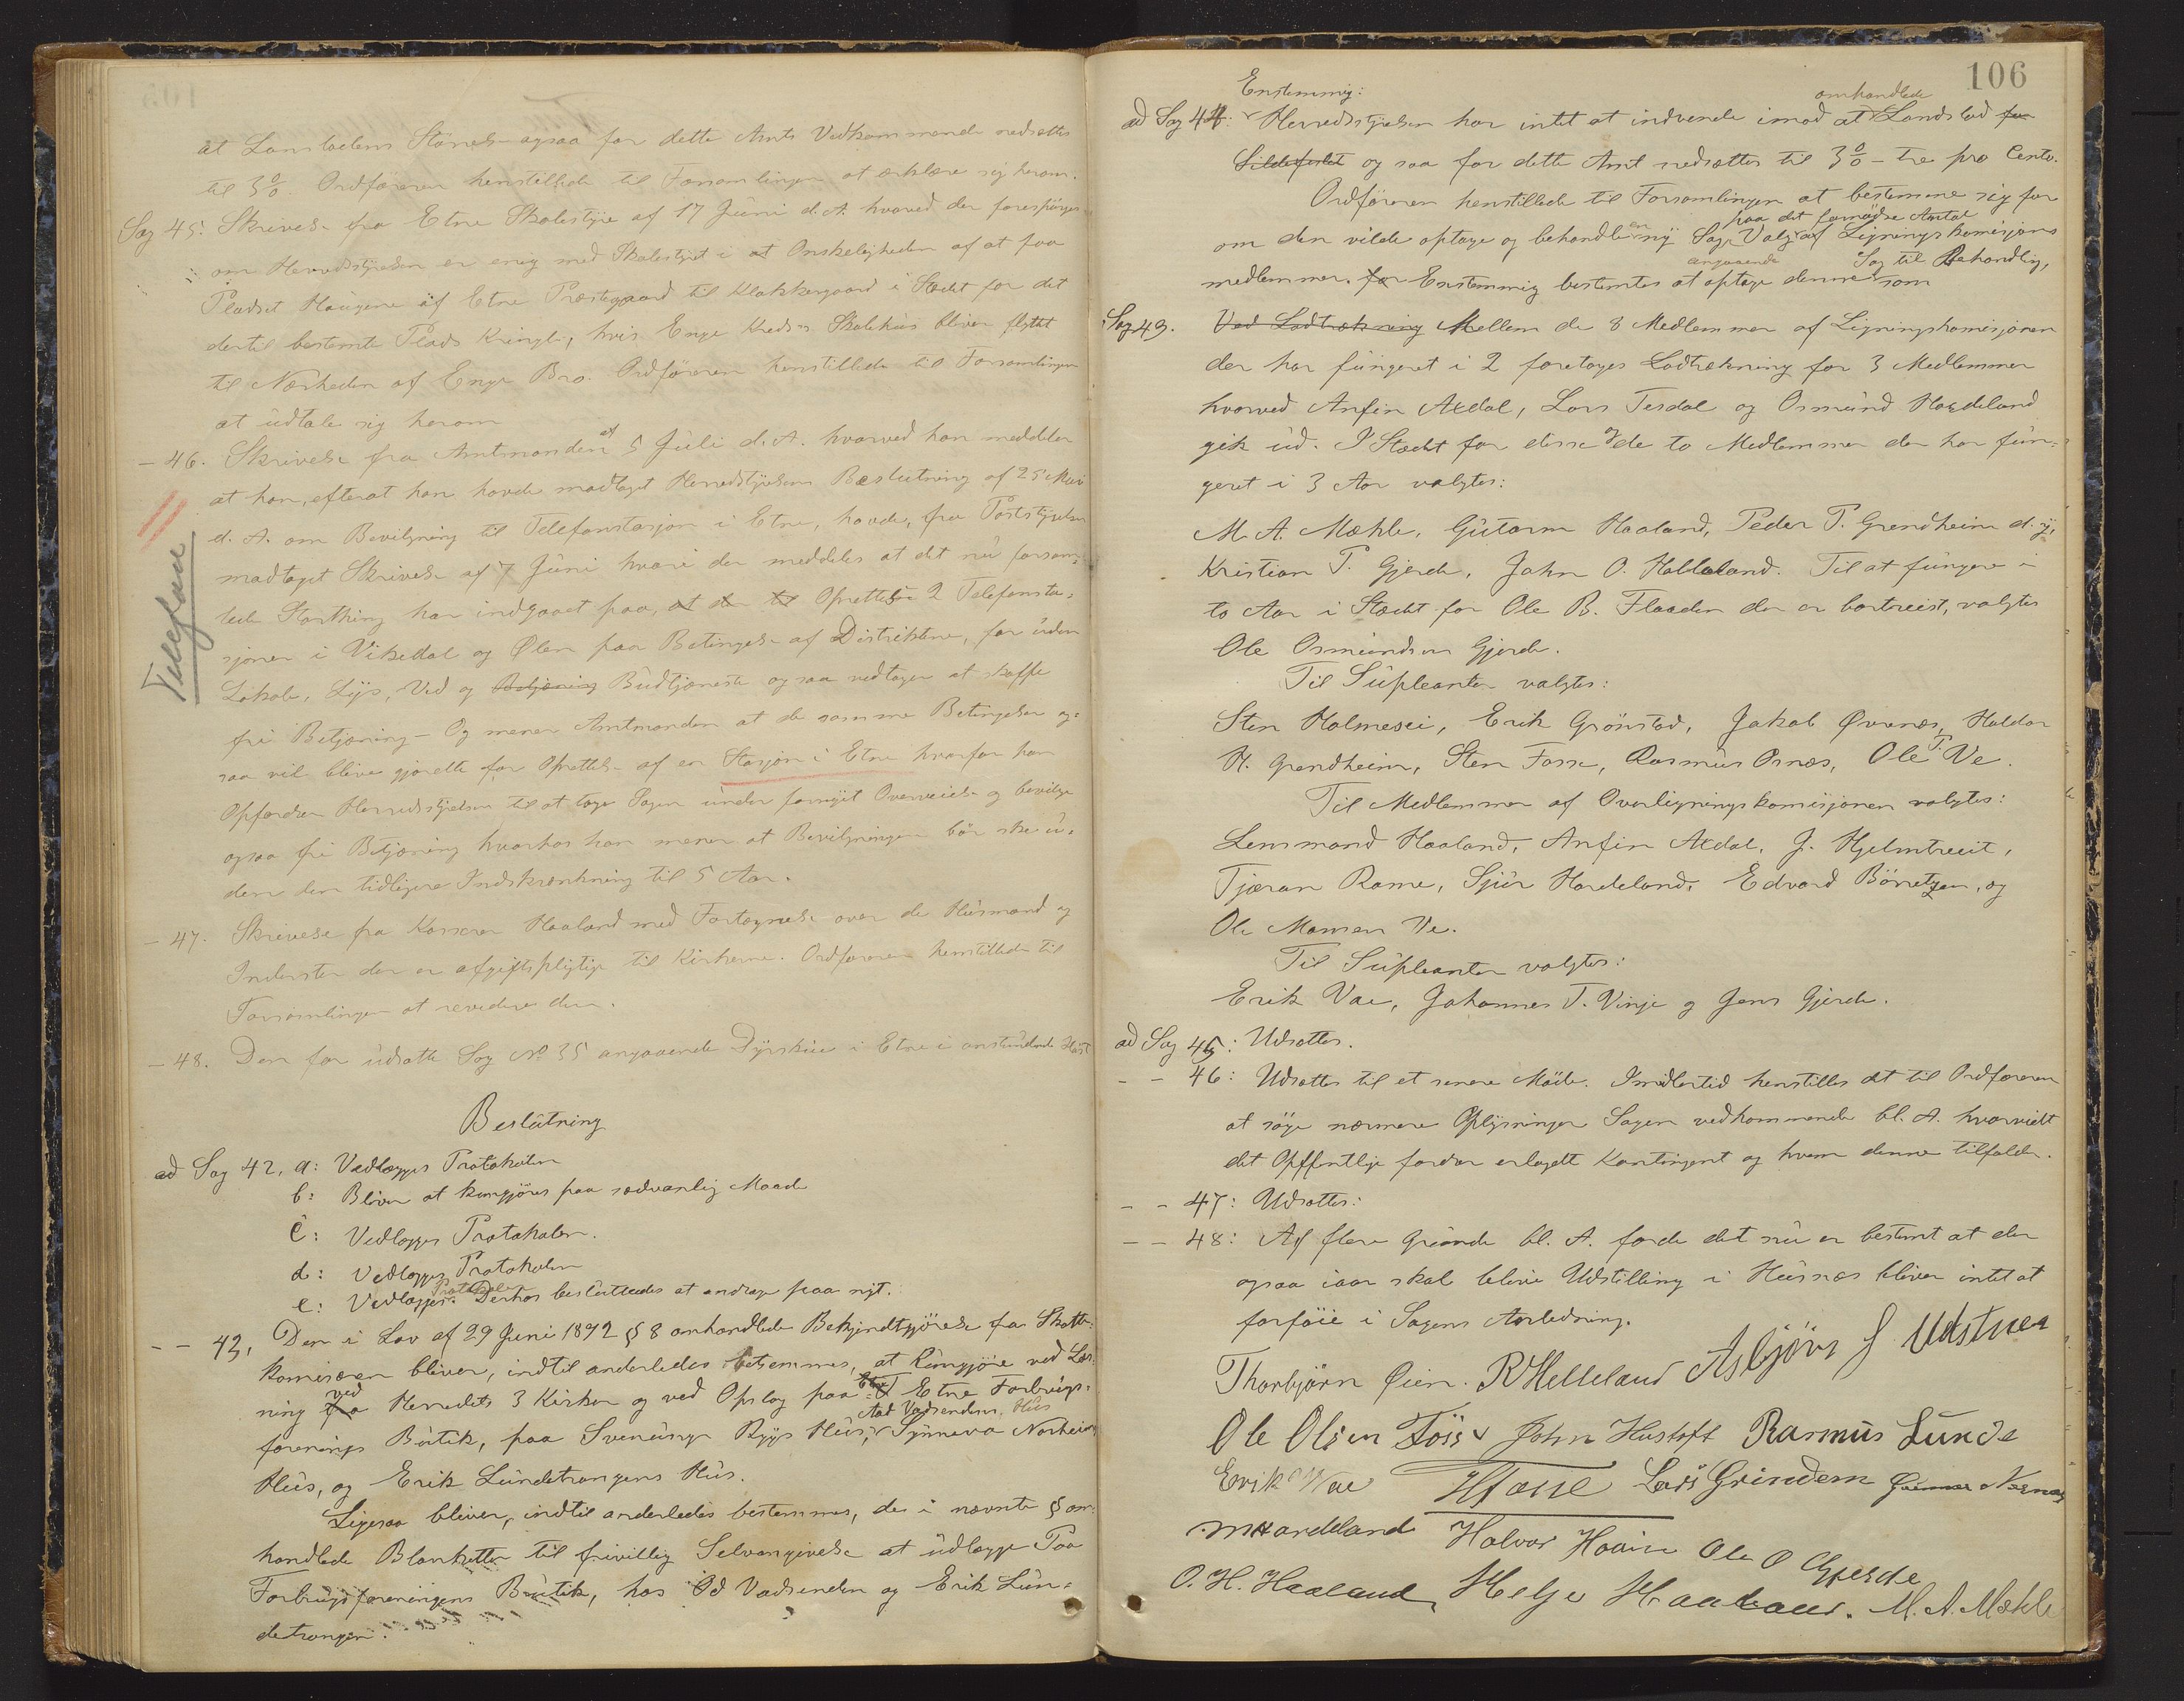 at Lanslodens Störrelse ogsaa for dette Amts Vedkommende nedsættes
til 3%. Ordföreren henstillede til Forsamlingen at erklære sig herom.
Sag 45. Skrivelse fra Etne Skolestyre af 17 Juni d. A. hvorved der forespörges
om Herredsstyrelsen er enig med Skolestyret i at Onskeligheden af at faa
Pladset Haugene af Etne Præstegaard til Klokkergaard i Stedet for det
dertil bestemte Plads Kringle, hvis Enge Kreds's Skolehus bliver flyttet
til Nærheden af Enge Bro. Ordföreren henstillede til Forsamlingen
at udtale sig herom
- 46. Skrivelse fra Amtmanden af 5 Juli d. A. hvorved han meddeler
at han, efterat han havde modtaget Herredsstyrelsens Beslutning af 25 Mai
d. A. om Bevilgning til Telefonstasjon i Etne, havde, fra Poststyrelsen
modtaget Skrivelse af 7 Juni hvori der meddeles at det nu forsam-
lede Storthing har indgaaet paa, at der til Oprettelse 2 Telefonsta-
sjoner i Vikedal og Ølen paa Betingelse af Distriktene, for uden
Lokale, Lys, Ved og Betjening Budtjæneste ogsaa vedtager at skaffe
fri Betjæning - Og mener Amtmanden at de samme Betingelser og-
saa vil blive gjorette for Oprettelse af en Stasjon i Etne hvorfor han
Opfordrer Herredsstyrelsen til at tage Sagen under fornyet Overveielse og bevilge
ogsaa fri Betjæning hvorhos han mener at Bevilgningen bör ske u-
den den tidligere Indskrænkning til 5 Aar.
Telefon
- 47. Skrivelse fra Kasserer Haaland med Fortegnelse over de Husmænd og
Inderster der er afgiftspligtige til Kirkerne. Ordföreren henstillede til
Forsamlingen at revidere den.
- 48. Den för udsatte Sag No 35 angaaende Dyrskue i Etne i anstundende Høst
Beslutning
ad Sag 42, a: Vedlægges Protokolen
b: Bliver at kungjöres paa sædvanlig Maade
c: Vedlægges Protokolen.
d: Vedlægges Protokolen
e: Vedlægges Protokolen. Derhos besluttedes at andrage paa nyt.
- - 43, Den i Lov af 29 Juni 1892 § 8 omhandlede Bekjendtgjörelse fra Skatte-
komisæren bliver, indtil anderledes bestemmes, at kungjöre ved Læs-
ning fra ved Herredets 3 Kirker og ved Opslag paa Etne Forbrugs-
forenings Butik, paa Sveinungs Rygs Hus, Aad Vadsendens Hus Synneva Norheims
Hus, og Erik Lundetrangens Hus.
Ligesaa bliver, indtil anderledes bestemmes, de i nævnte § om-
handlede Blanketter til frivillig Selvangivelse at udlægge Paa
Forbrugsforeningens Butik, hos Od Vadsenden og Erik Lun-
detrangen.
106
Enstemmig:
ad Sag 44: Herredsstyrelsen har intet at indvende imod at omhandlede Landslod for
Sildefisket og saa for dette Amt nedsættes til 3% - tre pro Cento.
Ordföreren henstillede til Forsamlingen at bestemme sig for
om den vilde optage og behandle en ny Sag, Valg paa det fornödne Antal af Ligningskomisjons
medlemmer. for Enstemmig bestemtes at optage denne angaaende Sag til Behandling, som
Sag 49. Ved Lodtrækning Mellem de 8 Medlemmer af Ligningskomisjonen
der har fungeret i 2 foretages Lodtrækning for 3 Medlemmer
hvorved Anfin Axdal, Lars Tesdal og Osmund Hardeland
gik ud. I Stedet for disse og de to Medlemmer der har fun-
geret i 3 Aar valgtes:
M. A. Mæhle, Gutorm Haaland, Peder P. Grendheim d. y.,
Kristian P. Gjerde, John O. Hallaland. Til at fungere i
to Aar i Stedet for Ole B. Flaaden der er bortreist, valgtes
Ole Osmundsen Gjerde.
Til Supleanter valgtes:
Sten Holmesei, Erik Grönstad, Jakob Øvrenæs, Haldor
H. Grendheim, Sten Fosse, Rasmus Osnæs, Ole T. Ve.
Til Medlemmer af Overligningskomisjonen valgtes:
Lensmand Haaland, Anfin Axdal, J. Hjelmtveit,
Tjæran Rame, Sjur Hardeland, Edvard Börretzen, og
Ole Monsen Ve.
Til Supleanter valgtes:
Erik Vae, Johannes T. Vinje og Jens Gjerde.
ad Sag 45: Udsattes.
- - 46: Udsattes til et senere Möde. Imidlertid henstilles det til Ordföreren
at söge nærmere Oplysninger Sagen vedkommende bl. A. hvorvidt
det Opffentlige fordrer erlagdt Kontingent og hvem denne tilfalder.
- - 47: Udsattes:
- - 48: Af flere Grunde bl. A. fordi det nu er bestemt at der
ogsaa iaar skal blive Udstilling i Husnæs bliver intet at
forföie i Sagens Anledning.
Thorbjörn Øien. R Helleland Asbjörn J Udstnes
Ole Olsen Töss John Hustoft Rasmus Lunde
Erik Vae H Fosse Lars Grindem
M Hardeland Halvor Haaien Ole O Gjerde
O. H. Haaland Helje Haaland. M. A. Mæhle